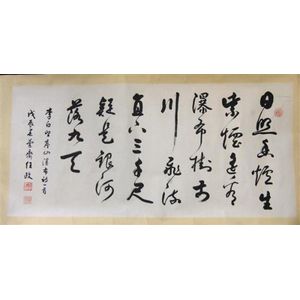 日照香爐生
紫煙遙看
瀑布掛前
川飛流
直下三千尺
疑是銀河
落九天
李白望廬山瀑布詩一首
戊辰春
任政